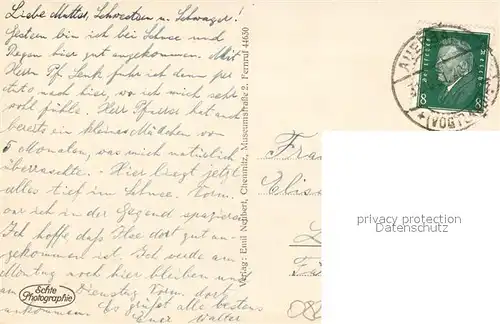 Liebe Mutter, Schwester u. Schwager!
Gestern bin ich bei Schnee und
Regen hier gut angekommen. Mit
Herrn Pf. Senk fuhr ich dem
hier, wo ich mich sehr
wohl fühle. Herr Pfarrer hat auch
bereits ein kleines Mädchen von
5 Monaten, was mich natürlich
überraschte. - Hier liegt jetzt
alles tief im Schnee. Vorm.
war ich in der Gegend spazieren.
Ich hoffe, daß Ilse dort gut an-
gekommen ist. Ich werde am
Montag noch hier bleiben und
am Dienstag Vorm. dort
ankommen. Es grüßt alle bestens
Euer Walter
Echte
Photographie
Verlag: Emil Neubert, Chemnitz, Museumstraße 2. Fernruf 44650
Deutsches Reich
8 8
AUE
(VOGTL)
Fra
Elis
privacy protection
Datenschutz